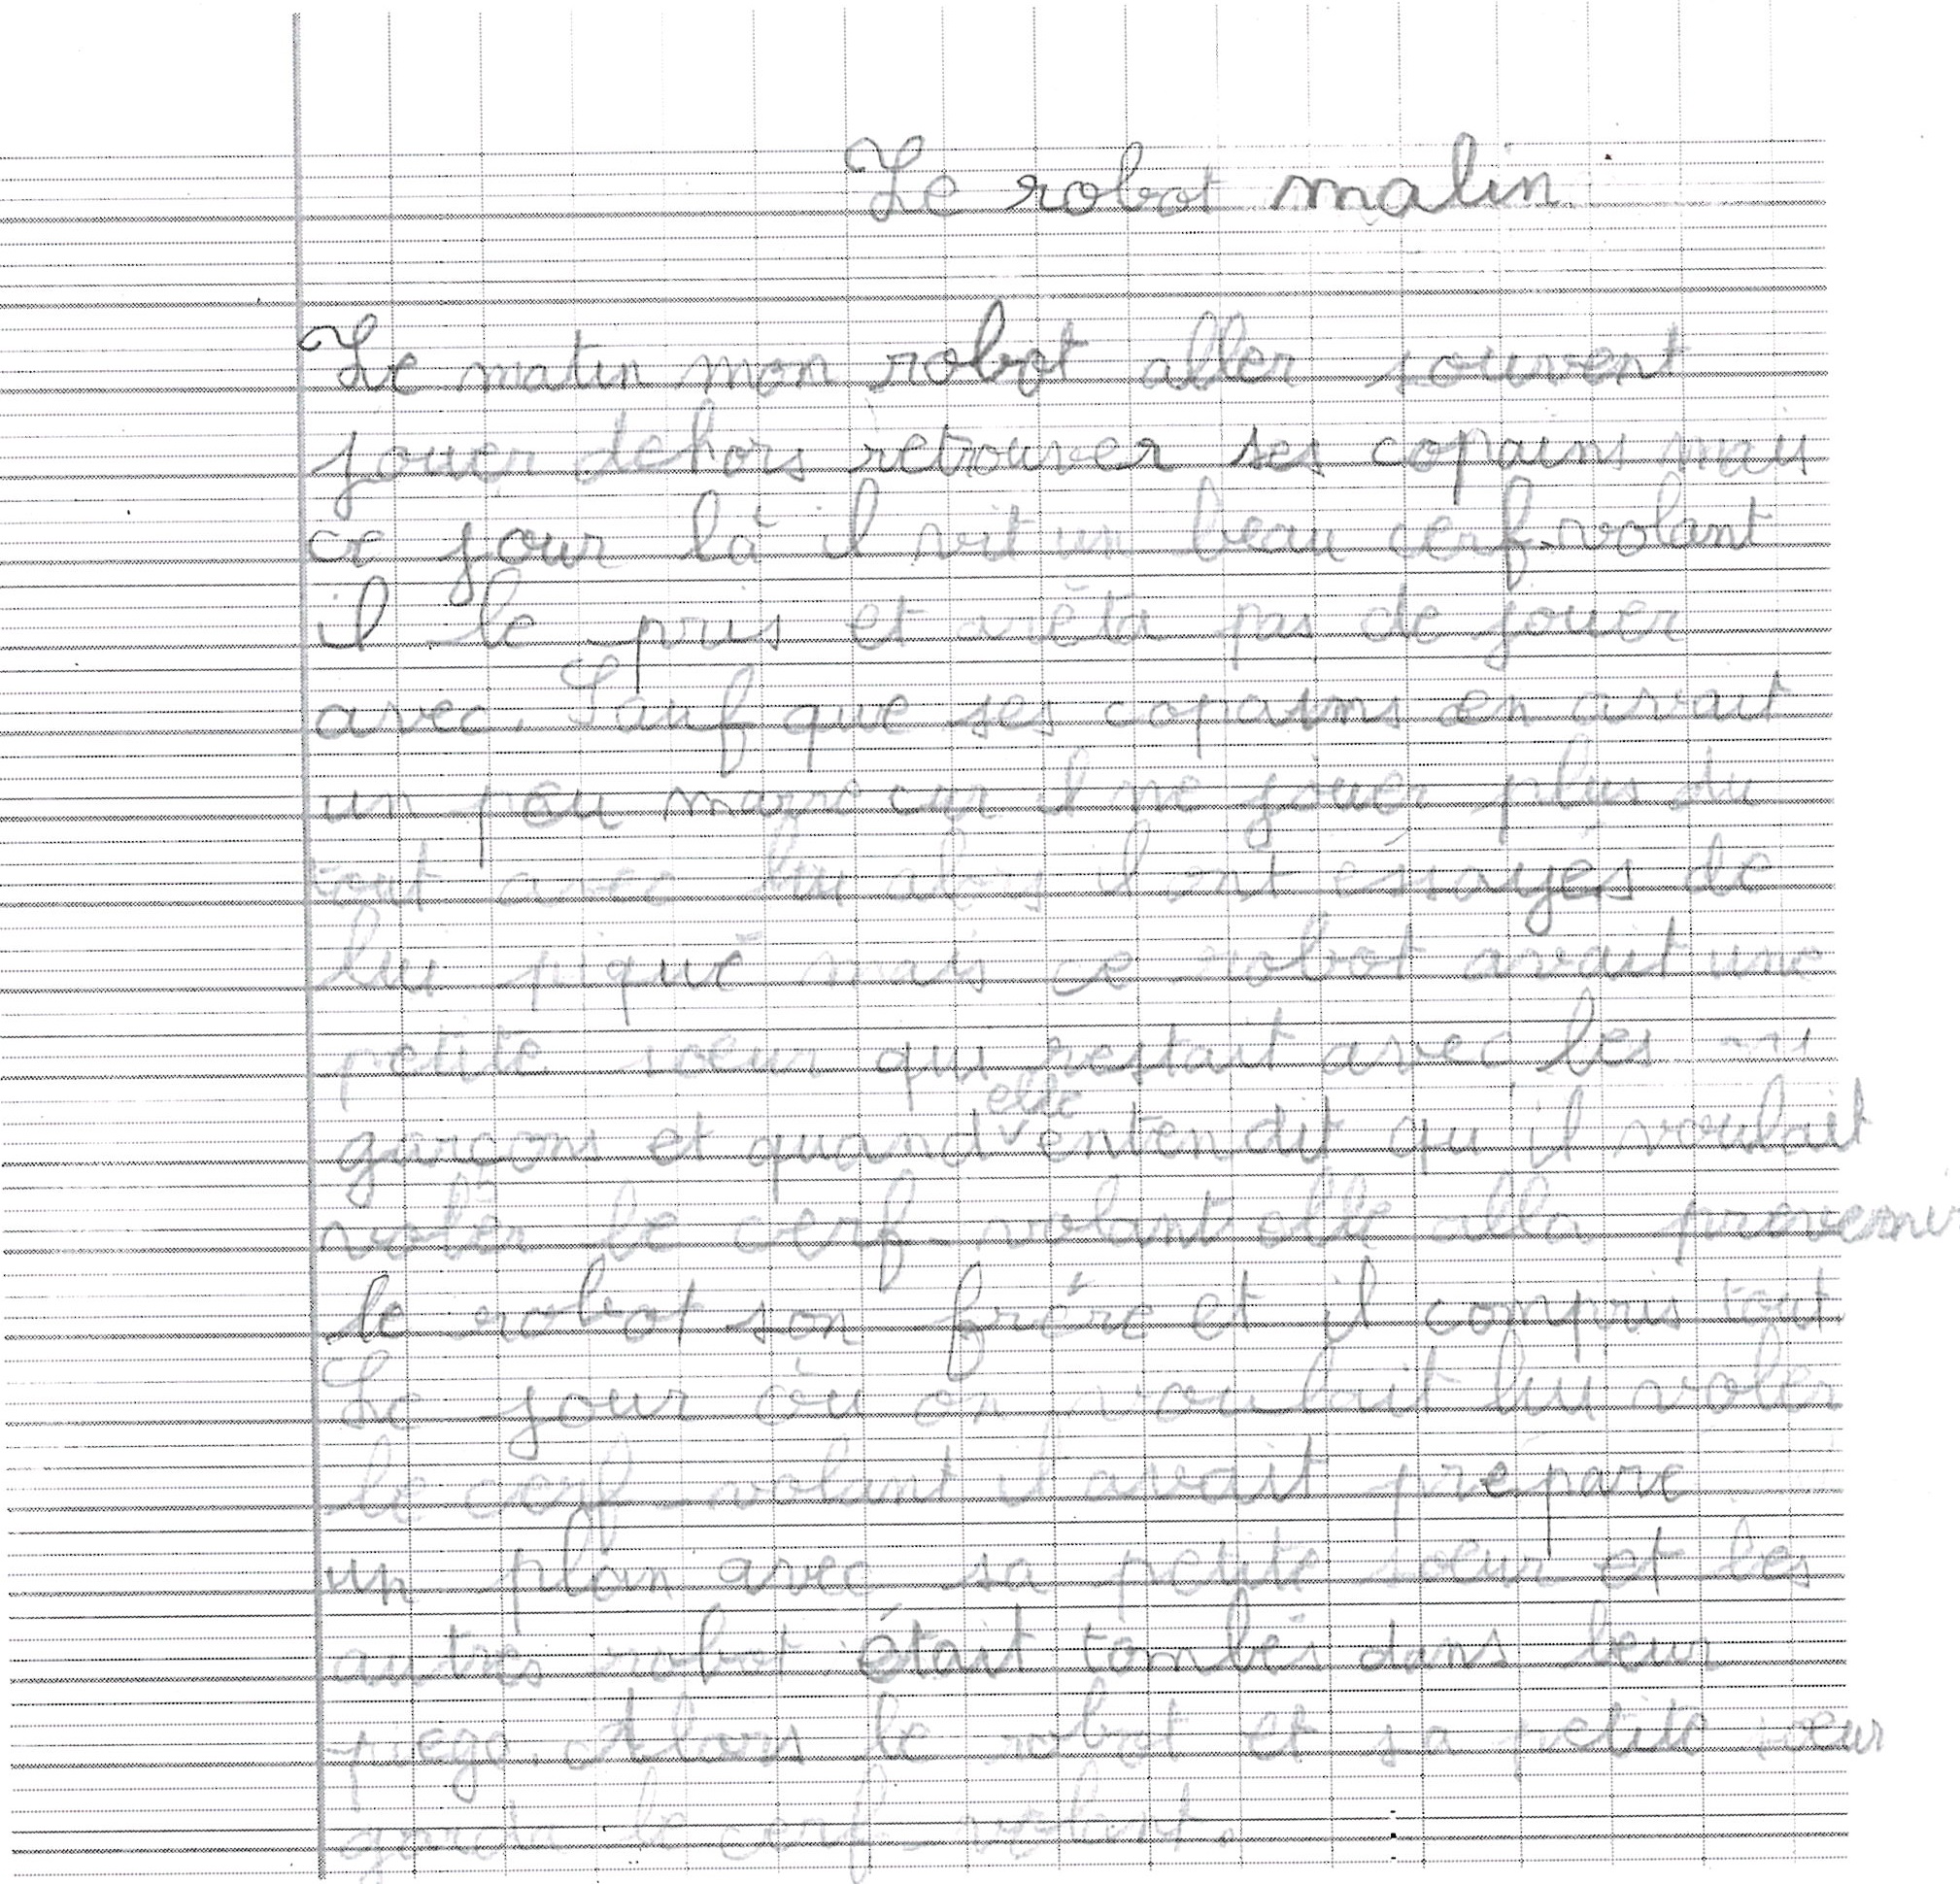 Le robot malin
Le matin mon robot aller souvent
jouer dehors retrouver ses copains mais
ce jour là il vit un beau cerf-volant
il le pris et arêta pas de jouer
avec. Sauf que ses copains en avait
un peu marre car il ne jouer plus du
tout avec lui alors il ont éssayés de
lui piqué mais ce robot avait une
petite sœur qui restait avec les
garçons et quand elle entendit qu'il voulait
voler le cerf-volant elle alla prevenir
le robot son frére et il compris tout
Le jour où on voulait lui voler
le cerf-volant il avait préparé
un plan avec sa petite sœur et les
autres robot était tombés dans leur
piege. Alors le robot et sa petite sœur
garda le cerf-volant.